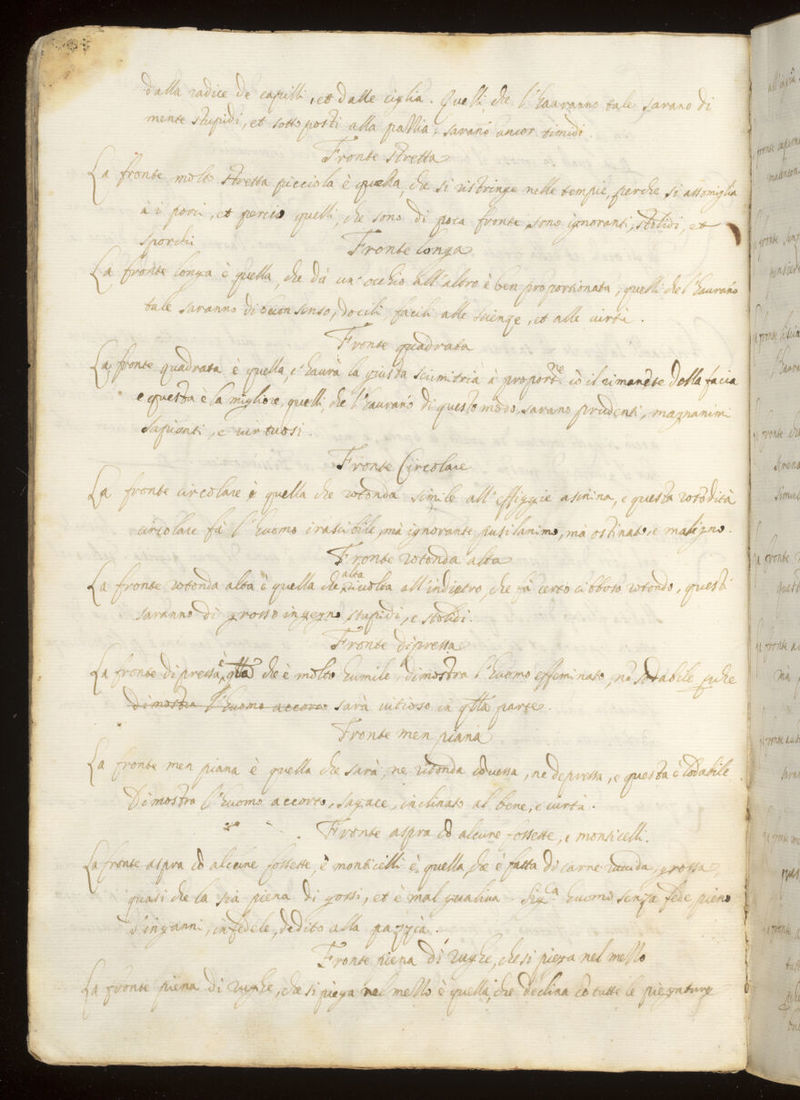 dalla radice de capilli, et dalle ciglia. Quelli che l'hauranno tale, sarano di
mente stupidi, et sottoposti alla pallia, sarano ancor timidi.
Fronte stretta
La fronte molto stretta picciola è quella, che si ristringe nelle tempie, perche si assomiglia
à i porci, et perciò quelli, che sono di poca fronte, sono ignoranti, stolidi, et
sporchi
Fronte longa
La fronte longa è quella, che dà un' occhio all'altro è ben proportionata, quelli che l'haurano
tale saranno di buon senso, docili facili alle scienze, et alle virtù.
Fronte quadrata
La fronte quadrata è quella, c'haurà la giusta scimitria è proport.ne cò il rimanẽte della facia
e questa è la migliore, quelli, che l'haurano di questo modo, sarano prudenti, magnanimi
sapienti, e virtuosi.
Fronte Circolare
La fronte circolare è quella che rotonda simile all'effiggie asinina, e questa rotõdità
circolare fà l'huomo irascibile, mà ignorante, pusilanimo, mà ostinato, e maligno.
Fronte rotonda alta
La fronte rotonda alta è quella che alta all'indietro, che fà certo cibboso rotondo, questi
saranno di grosso ingegno, stupidi, e stolidi.
Fronte dipressa
La fronte dipressa, è qlla che è molto humile, dimostra l'huomo effeminato, nõ lodabile perche
dimostra l'huomo accorto sarà vitioso in qlla parte.
Fronte men piana
La fronte men piana è quella che sarà, ne ritonda cõvessa, ne depressa, e questa è lodabile
Dimostra l'huomo accorto, sagace, inclinato al bene, e virtù.
Fronte aspra cõ alcune fossette, e monticelli.
La fronte aspra cõ alcune fossette, è monticelli è quella che è fatta di carne ruuida, grossa,
quasi che la sia piena di gossi, et è mal qualiva huomo senza fede pieno
d'inganni, infedele, dedito alla pazzia.
Fronte piena di rughe, che si piega nel mezzo
La fronte piena di rughe, che si piega nel mezzo è quella, che declina cõ tutte le piegature